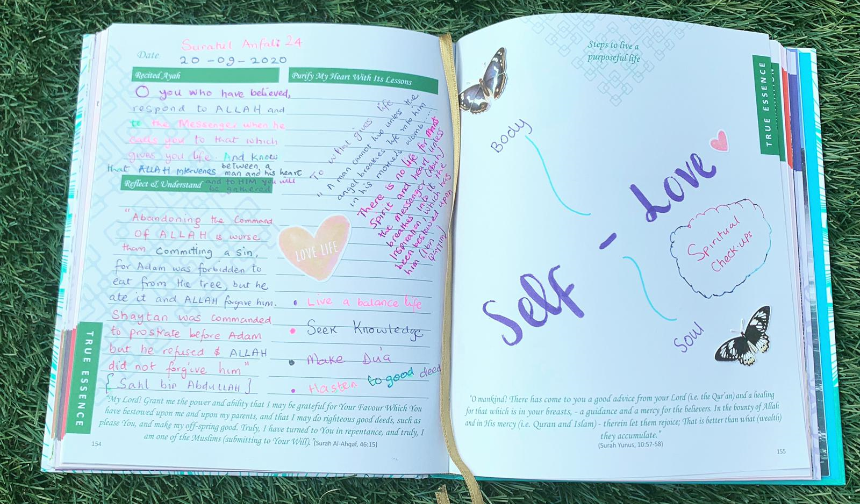 Surahel Anfal: 24
Date 20-09-2020
Recited Ayah
O you who have believed,
respond to ALLAH and
to the Messenger when he
calls you to that which
gives you life. And know
that ALLAH intervenes between a
man and his heart
and to HIM you will
Purify My Heart With Its Lessons
To what gives life
"A man cannot live unless the
angel breathes life into him
in his mother's womb...
There is no life for ones
Spirit and heart unless
the messenger (PBUH)
breathes into it the
Inspiration which has
been bestowed upon
him (Ibn Qayyim)
Reflect & Understand
"Abandoning the Command
OF ALLAH is worse
than commiting a sin,
for Adam was forbidden to
eat from the tree, but he
ate it and ALLAH forgive him.
Shaytan was commanded
to prostrate before Adam
but he refused & ALLAH
did not forgive him"
[Sahl bin Abdullah]
LOVE LIFE
• Live a balance life
• Seek Knowledge
• Make Du'a
• Hasten to good deed
TRUE ESSENCE
"My Lord! Grant me the power and ability that I may be grateful for Your Favour Which You
have bestowed upon me and upon my parents, and that I may do righteous good deeds, such as
please You, and make my off-spring good. Truly, I have turned to You in repentance, and truly, I
am one of the Muslims (submitting to Your Will). [Surah Al-Ahqaf, 46:15]
154
Steps to live a
purposeful life
TRUE ESSENCE
Body
Self - Love
Spiritual
Check-ups
Soul
"O mankind! There has come to you a good advice from your Lord (i.e. the Qur'an) and a healing
for that which is in your breasts, - a guidance and a mercy for the believers. In the bounty of Allah
and in His mercy (i.e. Quran and Islam) - therein let them rejoice; That is better than what (wealth)
they accumulate."
(Surah Yunus, 10:57-58)
155